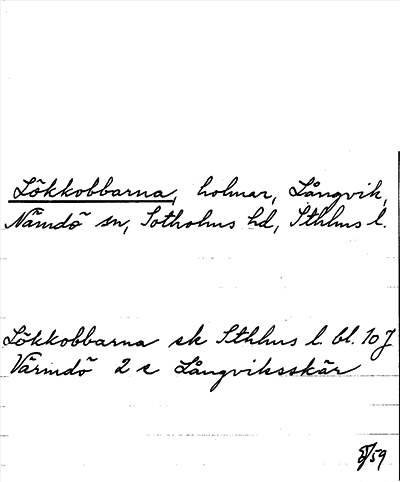 Lökkobbarna, holmar, Långvik,
Nämdö sn, Sotholms hd, Sthlms l.
Lökkobbarna sk Sthlms l. bl. 10 J
Värmdö 2 c Långviksskär
/59